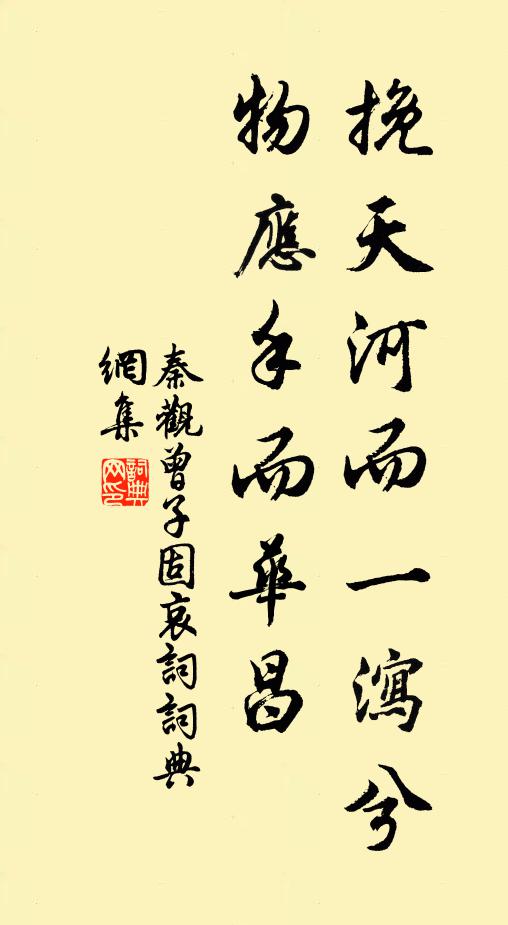 挽天河而一瀉兮
物應手而華昌
秦觀曾子固哀詞詞典
網集
詞典网印